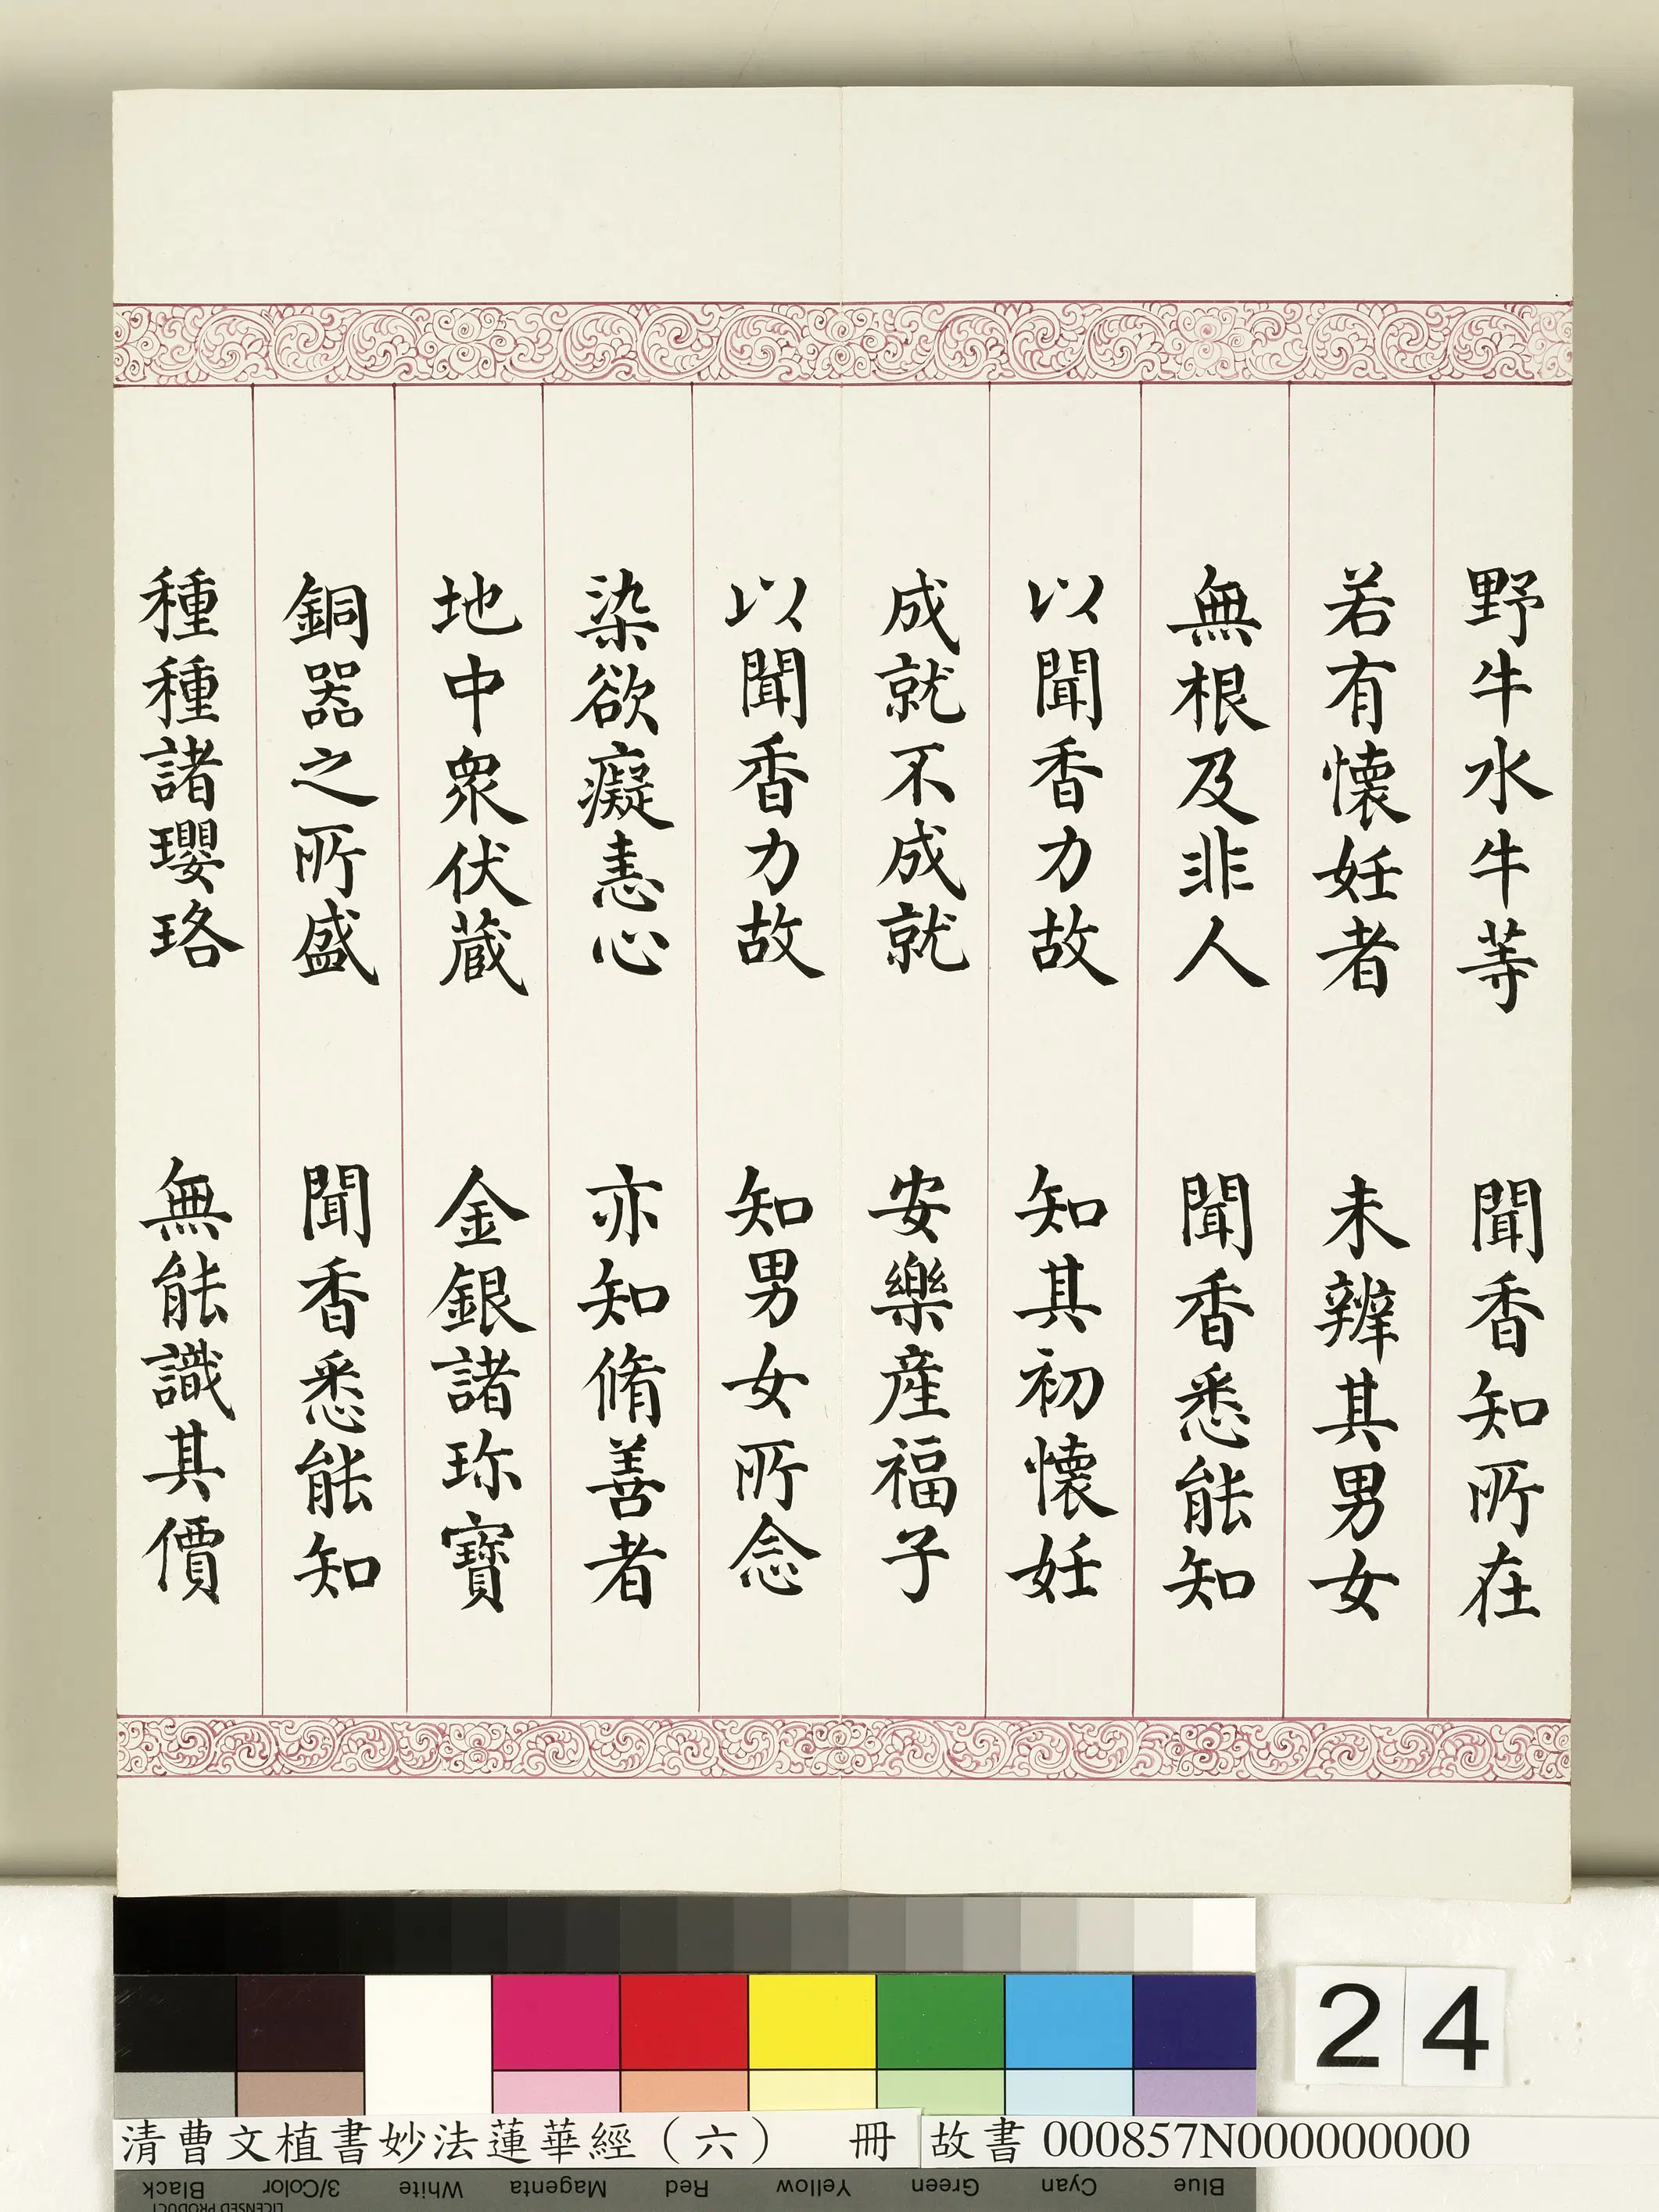 野牛水牛等　聞香知所在
若有懷妊者　未辨其男女
無根及非人　聞香悉能知
以聞香力故　知其初懷妊
成就不成就　安樂產福子
以聞香力故　知男女所念
染欲癡恚心　亦知脩善者
地中衆伏蔵　金銀諸珎寶
銅器之所盛　聞香悉能知
種種諸瓔珞　無能識其價
24
清曹文植書妙法蓮華經（六）　冊　故書 000857N000000000
Black 3/Color White Magenta Red Yellow Green Cyan Blue
LICENSED PRODUCT